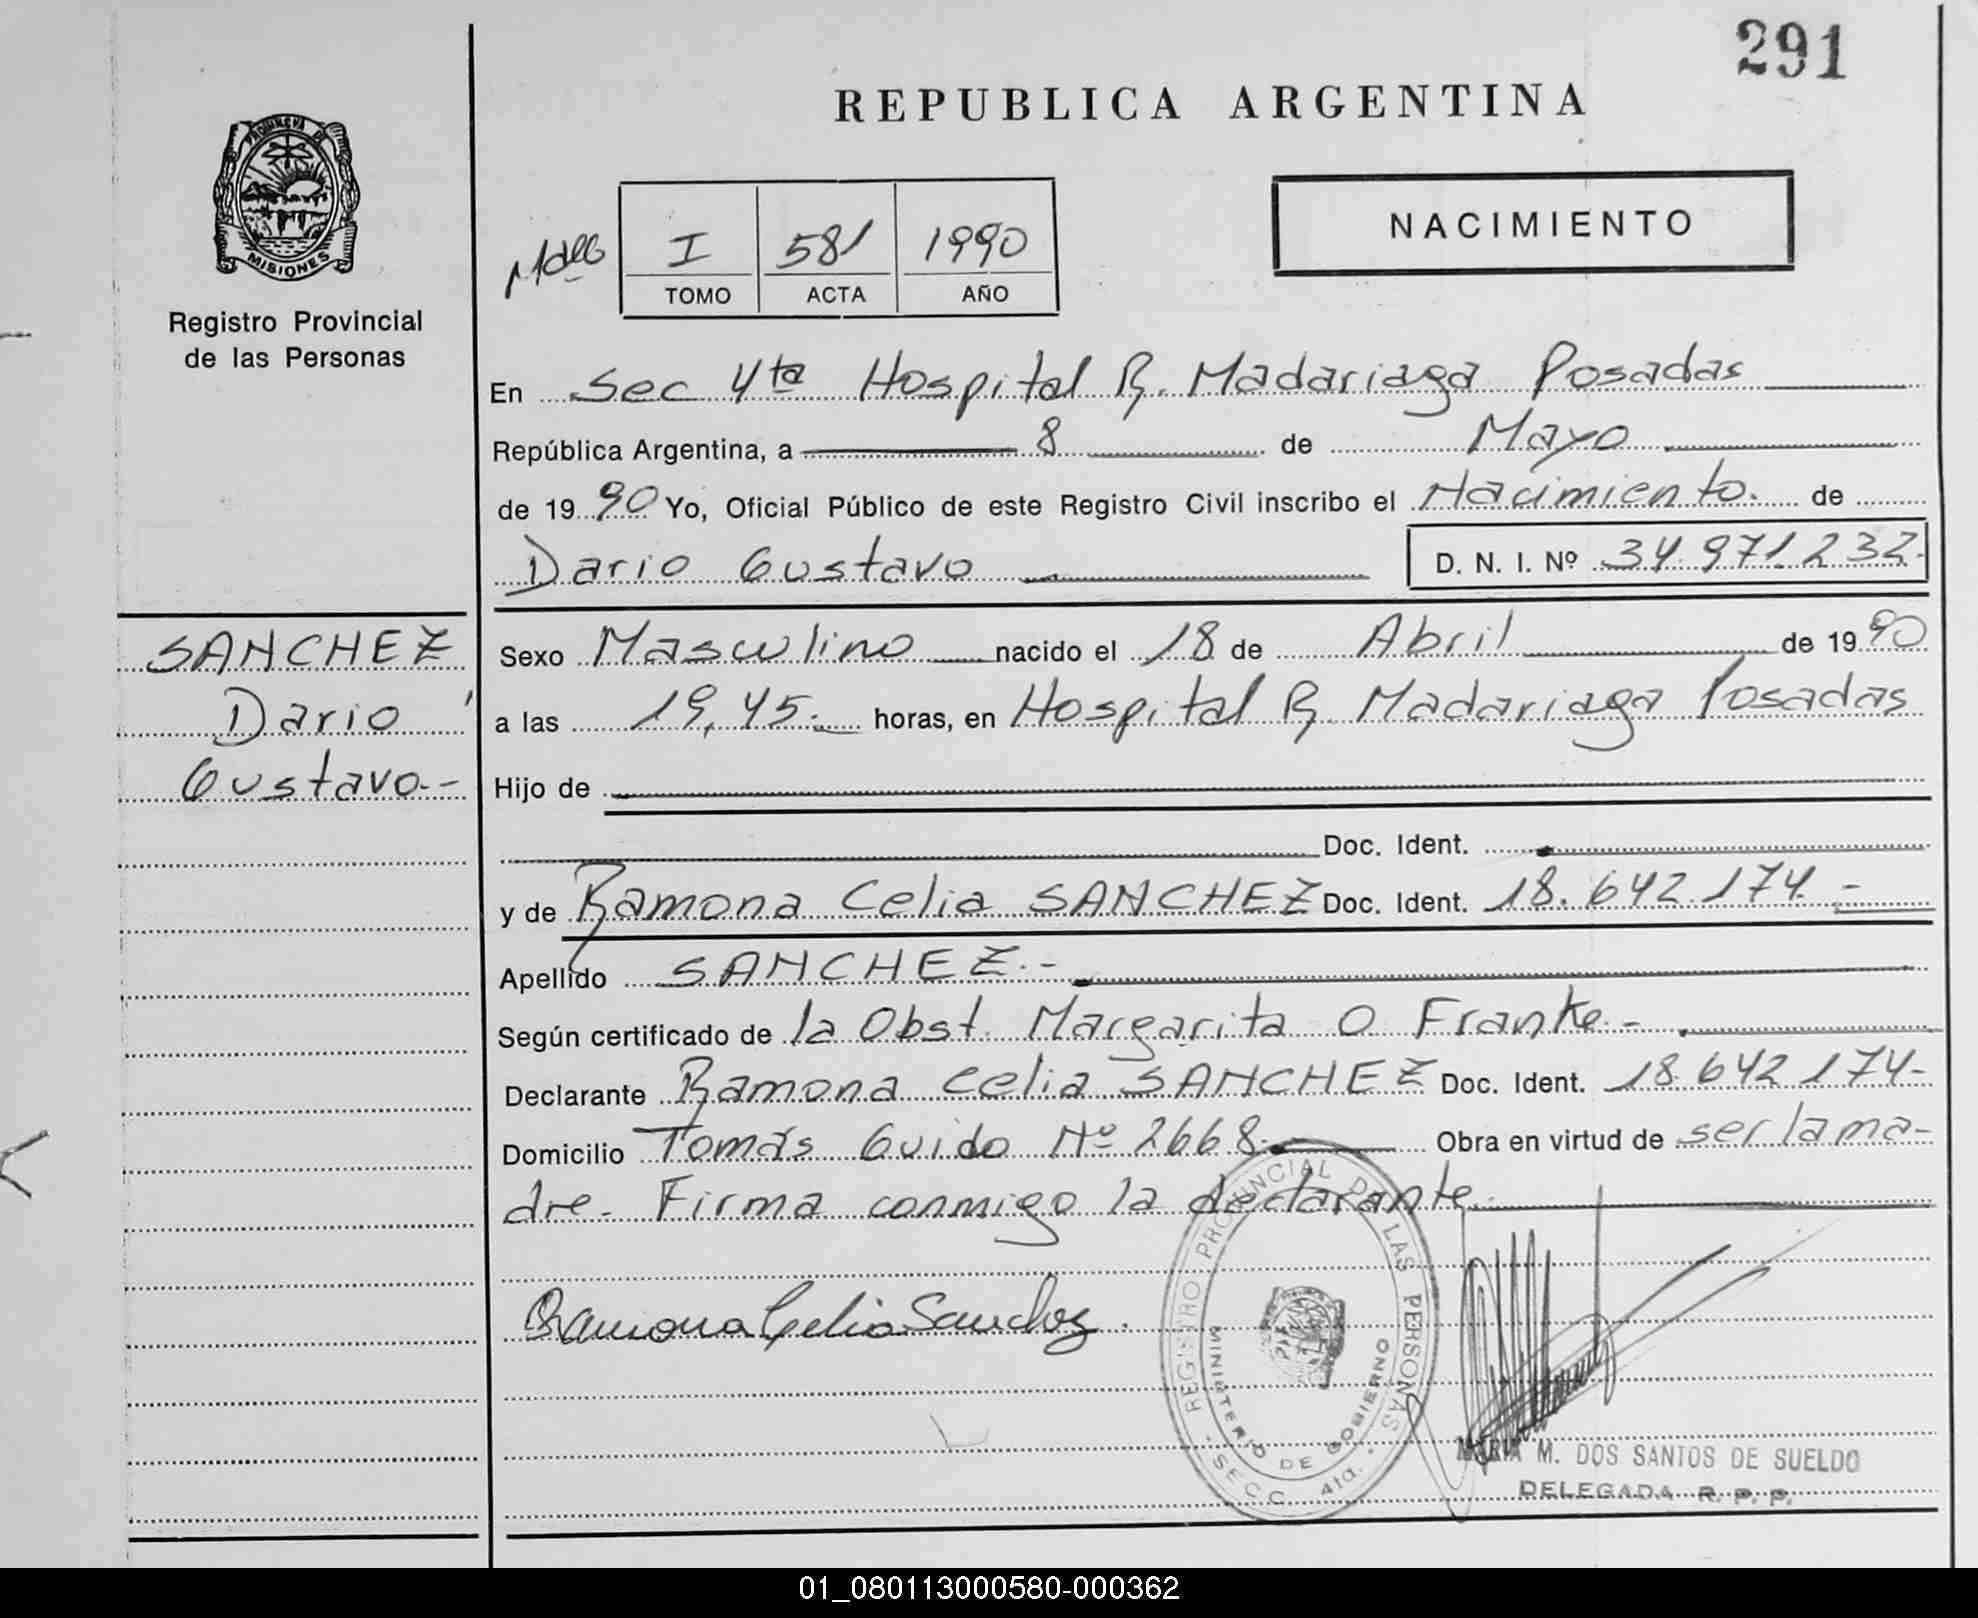 291
REPUBLICA ARGENTINA
PROVINCIA DE
MISIONES
Registro Provincial
de las Personas
I 581 1990
TOMO ACTA AÑO
NACIMIENTO
En Sec 4ta Hospital R. Madariaga Posadas
República Argentina, a 8 de Mayo
de 1990 Yo, Oficial Público de este Registro Civil inscribo el Nacimiento. de
Dario Gustavo D. N. I. Nº 34.971.232.
SANCHEZ
Dario
Gustavo.-
Sexo Masculino nacido el 18 de Abril de 1990
a las 19,45. horas, en Hospital R. Madariaga Posadas
Hijo de
Doc. Ident.
y de Ramona Celia SANCHEZ Doc. Ident. 18.642.174.-
Apellido SANCHEZ.-
Según certificado de la Obst. Margarita O Franke.-
Declarante Ramona Celia SANCHEZ Doc. Ident. 18.642 174-
Domicilio Tomás Guido Nº 2668.- Obra en virtud de ser la ma-
dre. Firma conmigo la declarante.
Ramona Celia Sanchez.
REGISTRO PROVINCIAL DE LAS PERSONAS
MINISTERIO DE GOBIERNO
SECC. 4ta.
MARIA M. DOS SANTOS DE SUELDO
DELEGADA R. P. P.
01_080113000580-000362